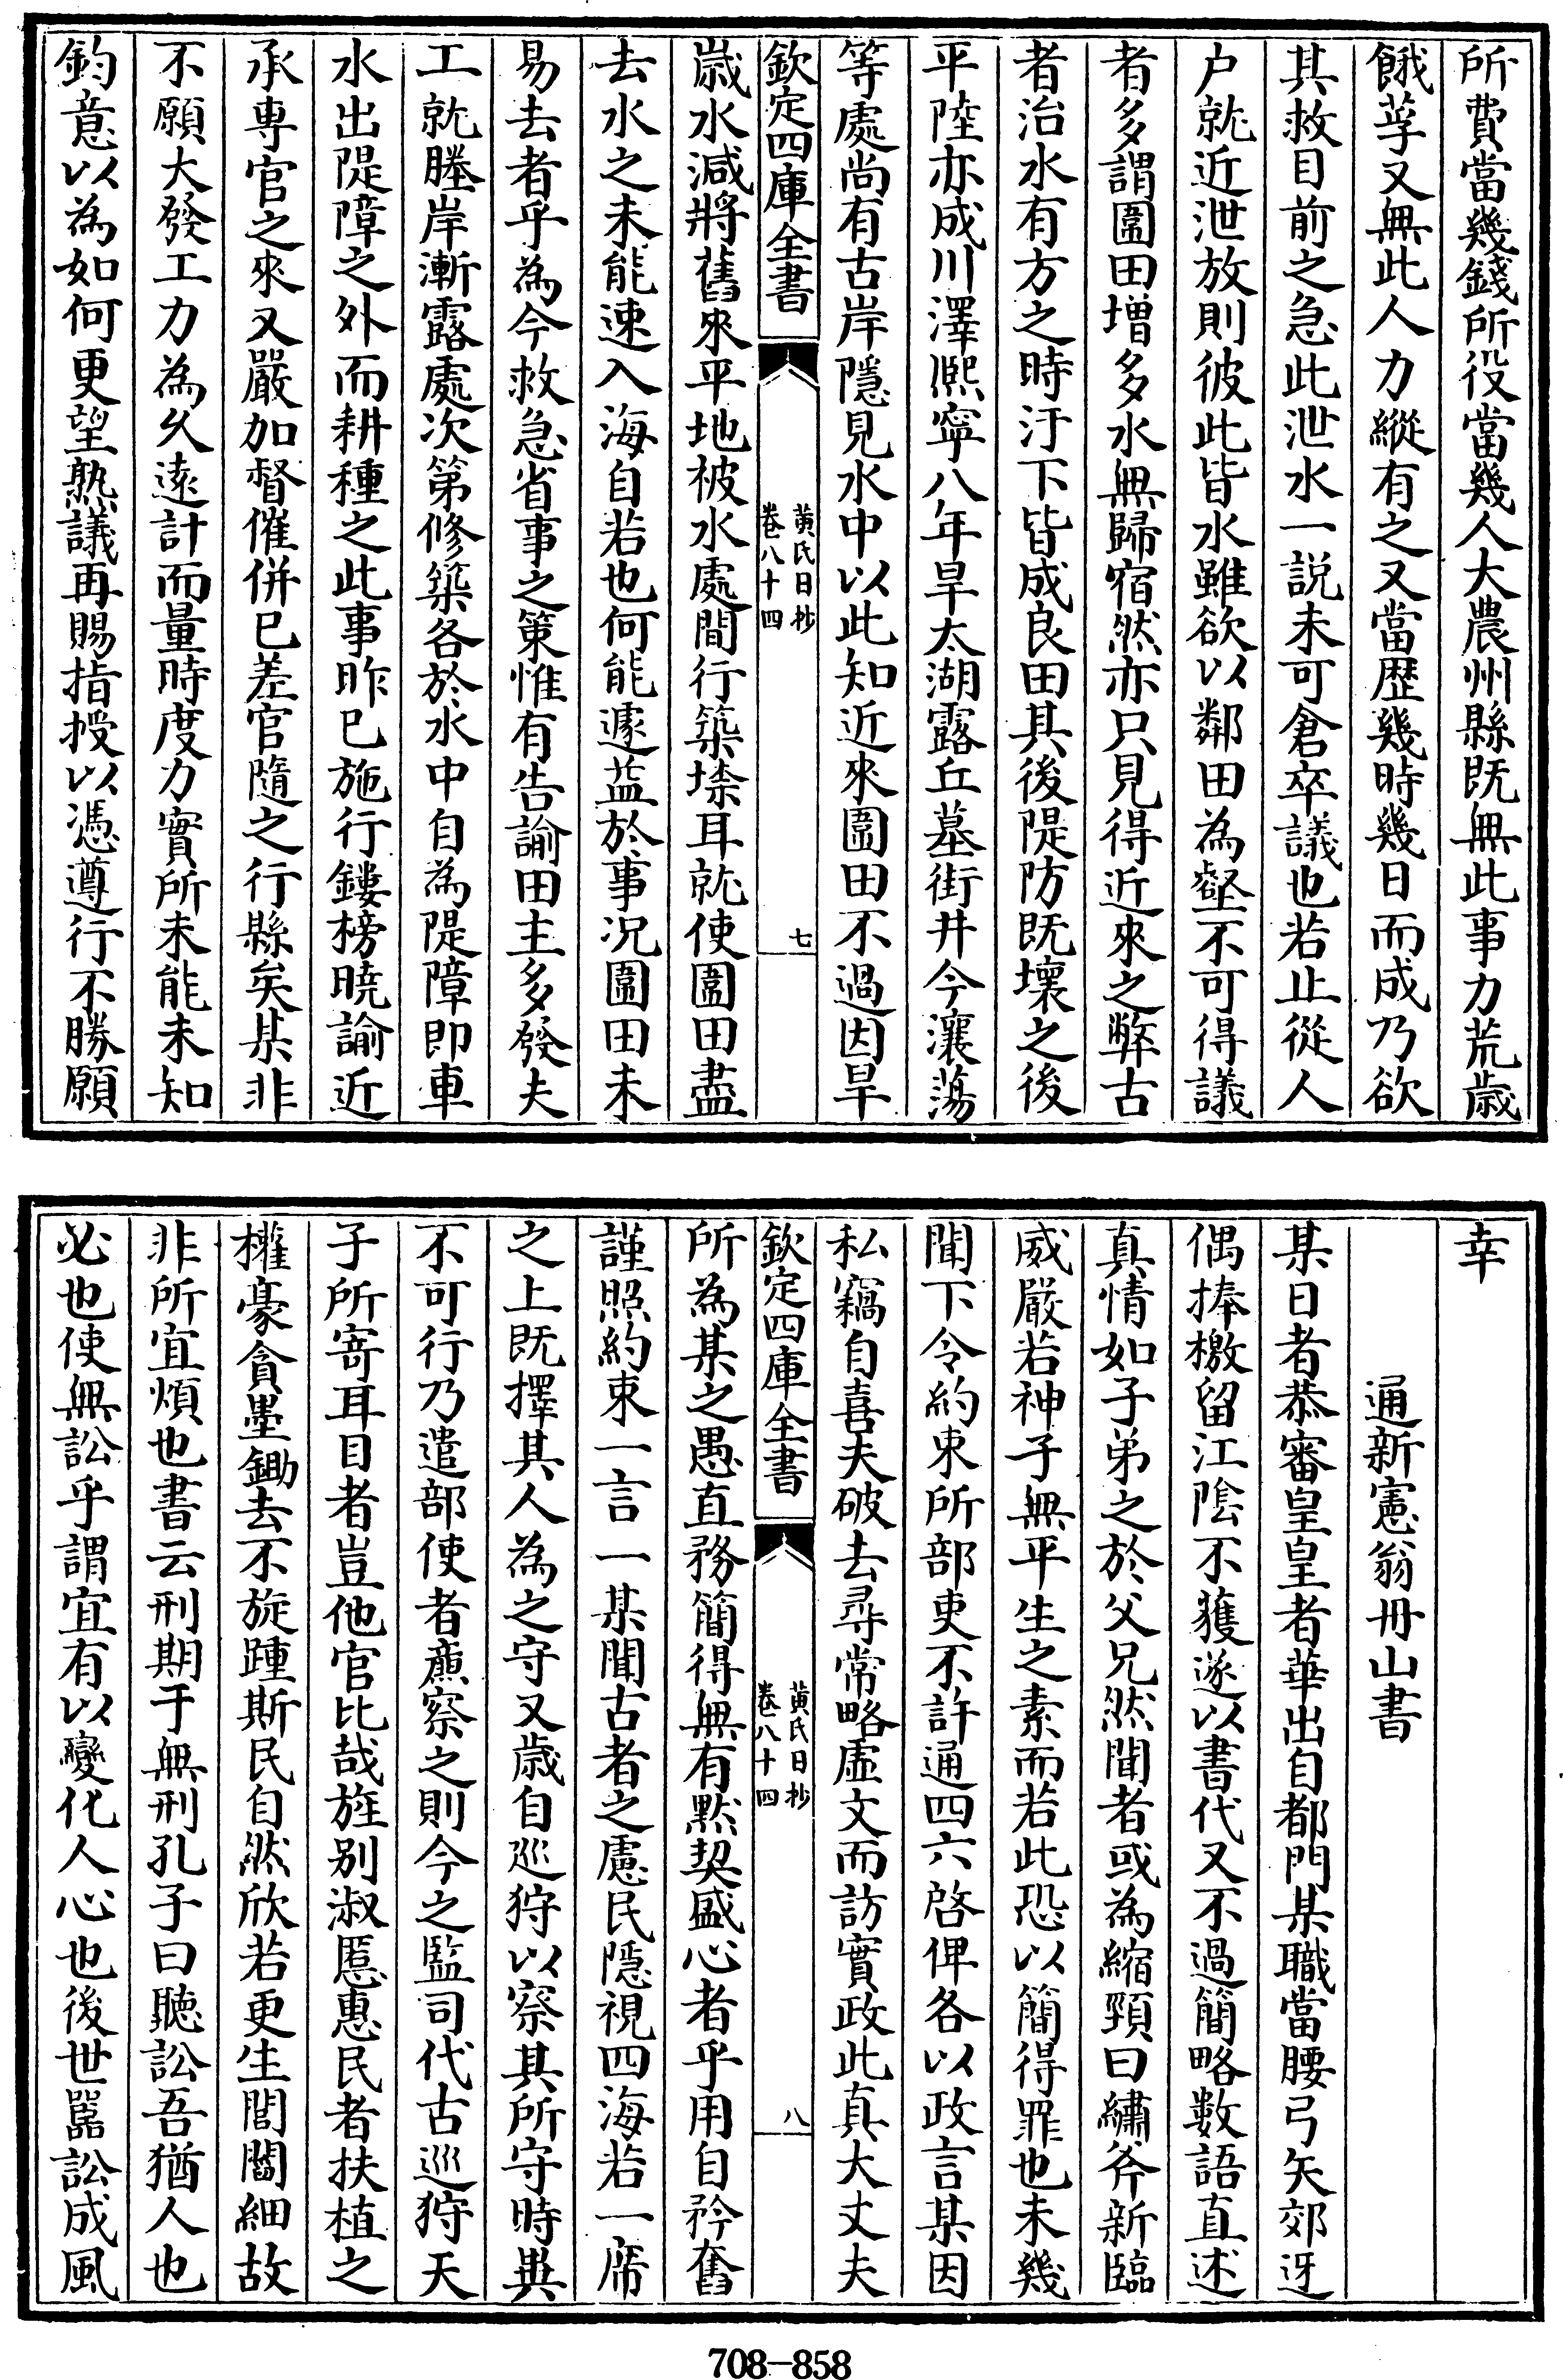 所費當幾錢所役當幾人大農州縣既無此事力荒歲
餓莩又無此人力縱有之又當歷幾時幾日而成乃欲
其救目前之急此泄水一説未可倉卒議也若止從人
户就近泄放則彼此皆水雖欲以鄰田為壑不可得議
者多謂圍田增多水無歸宿然亦只見得近來之弊古
者治水有方之時汙下皆成良田其後隄防既壞之後
平陸亦成川澤熈寧八年旱太湖露丘墓街井今瀼蕩
等處尚有古岸隱見水中以此知近來圍田不過因旱
欽定四庫全書
黄氏日抄
卷八十四
七
歲水減將舊來平地被水處間行築塍耳就使圍田盡
去水之未能速入海自若也何能遽益於事况圍田未
易去者乎為今救急省事之策惟有告諭田主多發夫
工就塍岸漸露處次第修築各於水中自為隄障即車
水出隄障之外而耕種之此事昨已施行鏤榜曉諭近
承專官之來又嚴加督催併已差官隨之行縣矣某非
不願大發工力為久遠計而量時度力實所未能未知
鈞意以為如何更望熟議再賜指授以憑遵行不勝願
幸
通新憲翁冊山書
某日者恭審皇皇者華出自都門某職當腰弓矢郊迓
偶捧檄留江隂不獲遂以書代又不過簡略數語直述
真情如子弟之於父兄然聞者或為縮頸曰繡斧新臨
威嚴若神子無平生之素而若此恐以簡得罪也未幾
聞下令約束所部吏不許通四六啓俾各以政言某因
私竊自喜夫破去尋常略虚文而訪實政此真大丈夫
欽定四庫全書
黄氏日抄
卷八十四
八
所為某之愚直務簡得無有黙契盛心者乎用自矜奮
謹照約束一言一某聞古者之慮民隱視四海若一席
之上既擇其人為之守又歲自廵狩以察其所守時異
不可行乃遣部使者㢘察之則今之監司代古廵狩天
子所寄耳目者豈他官比哉旌别淑慝惠民者扶植之
權豪貪墨鋤去不旋踵斯民自然欣若更生閭閻細故
非所宜煩也書云刑期于無刑孔子曰聽訟吾猶人也
必也使無訟乎謂宜有以變化人心也後世嚚訟成風
708-858